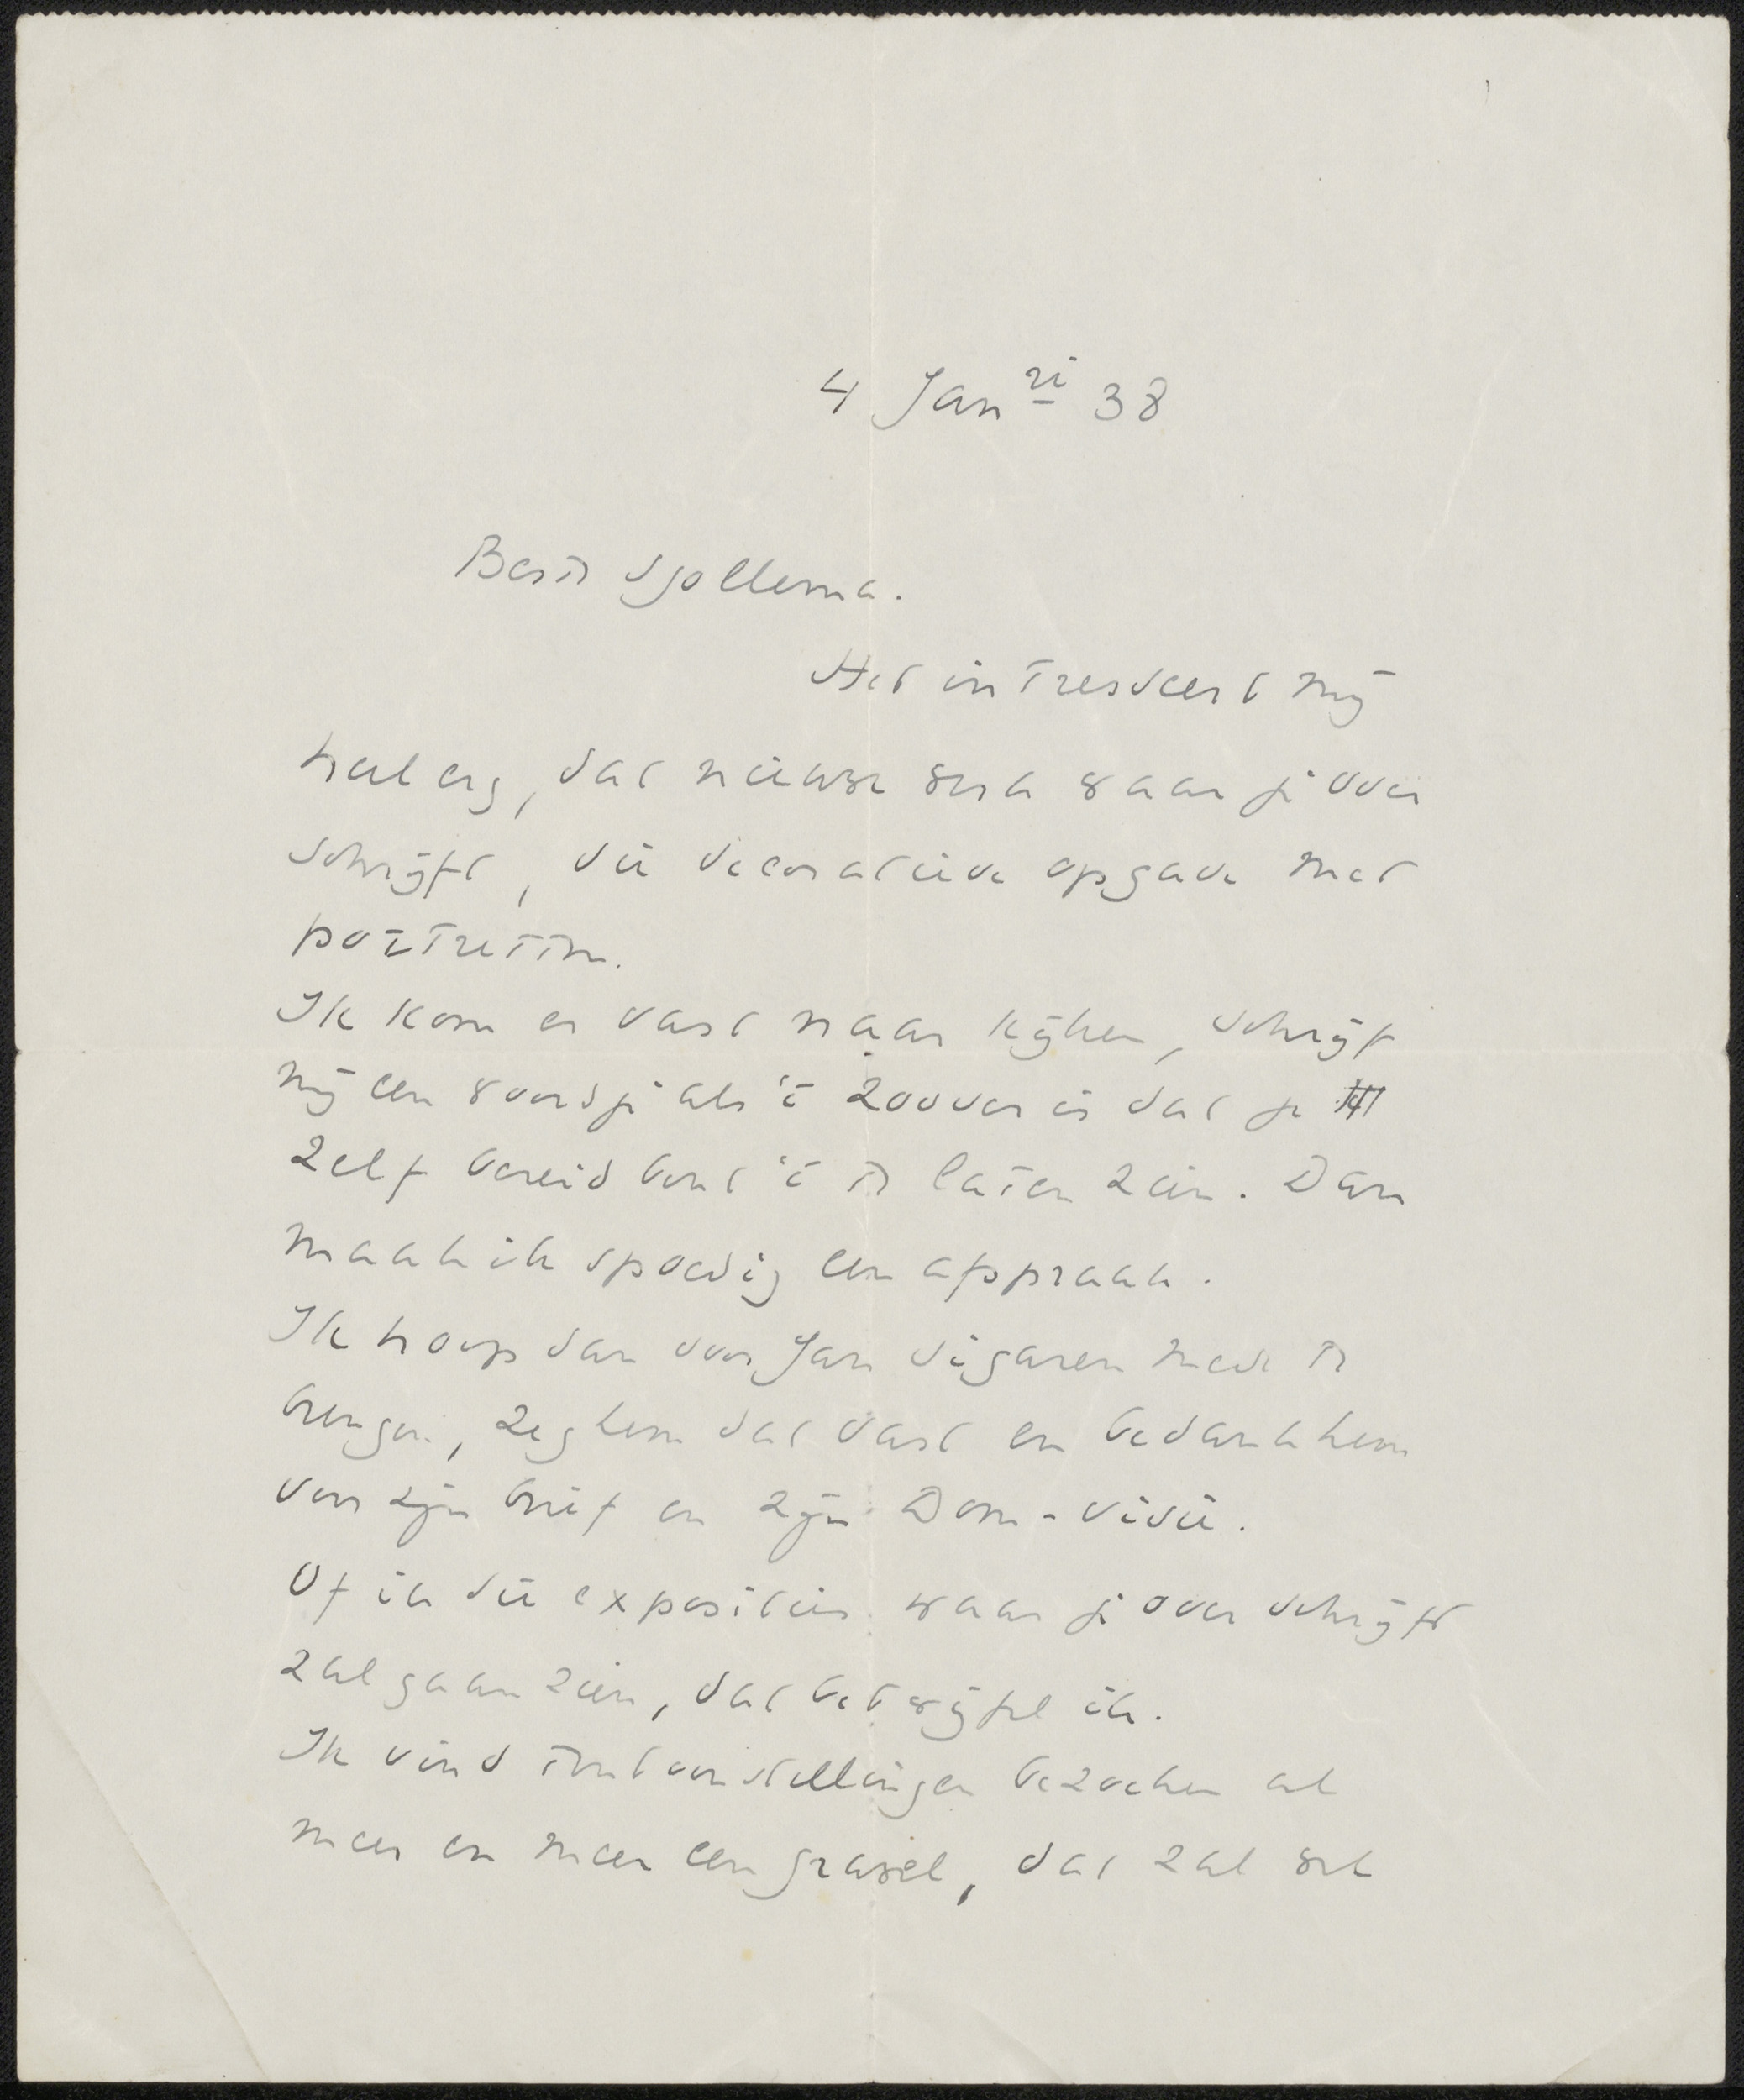 4 Jan ri 38
Beste Sjollema.
Het intresseert mij
heel erg, dat nieuwe werk waar je over
schrijft, die decoratieve opgave met
portretten.
Ik kom er vast naar kijken, schrijf
mij een woordje als 't zoover is dat je
zelf bereid bent 't te laten zien. Dan
maak ik spoedig een afspraak.
Ik hoop dan voor Jan sigaren mede te
brengen, zeg hem dat vast en bedank hem
voor zijn brief en zijn Dom-visie.
Of ik die expositie waar je over schrijft
zal gaan zien, dat betwijfel ik.
Ik vind tentoonstellingen bezoeken al
meer en meer een gruwel, dat zal wel